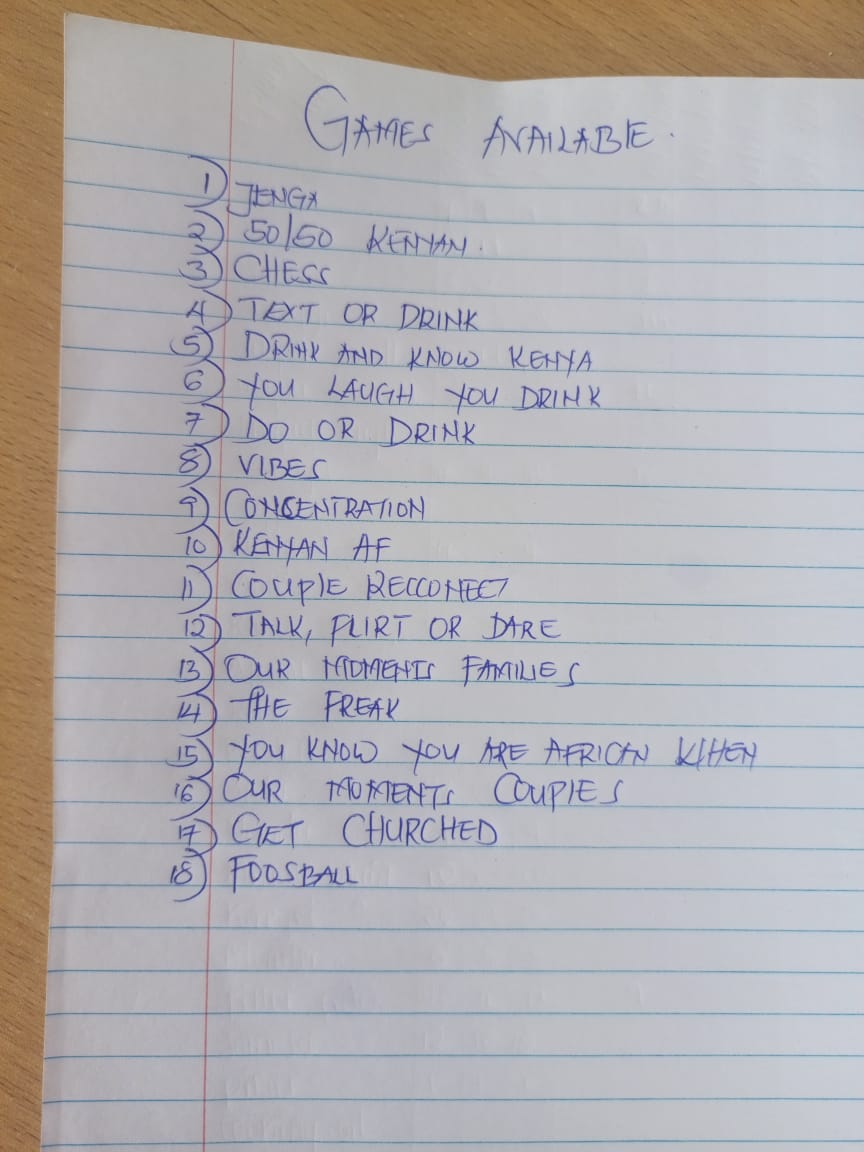 GAMES AVAILABLE.
1) JENGA
2) 50/50 KENYAN.
3) CHESS
4) TEXT OR DRINK
5) DRINK AND KNOW KENYA
6) YOU LAUGH YOU DRINK
7) DO OR DRINK
8) VIBES
9) CONCENTRATION
10) KENYAN AF
11) COUPLE RECCONECT
12) TALK, FLIRT OR DARE
13) OUR MOMENTS FAMILIES
14) THE FREAK
15) YOU KNOW YOU ARE AFRICAN WHEN
16) OUR MOMENTS COUPLES
17) GET CHURCHED
18) FOOSBALL